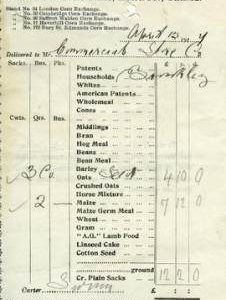 Stand No. 94 London Corn Exchange.
No. 30 Cambridge Corn Exchange.
No. 36 Saffron Walden Corn Exchange.
No. 17 Haverhill Corn Exchange.
No. 102 Bury St. Edmunds Corn Exchange.
April 12 191
Delivered to Mr. Commercial Co
Sacks. Bus. Pks. £ s. d.
Patents
Households
Whites
American Patents
Wholemeal
Cones
Cwts. Qrs. Bus.
Middlings
Bran
Hog Meal
Beans
Bean Meal
Barley
3 Oats Seed 4 10 0
Crushed Oats
Horse Mixture
2 — Maize 7 12 0
Maize Germ Meal
Wheat
Gram
"A.G." Lamb Food
Linseed Cake
Cotton Seed
ground
Cr. Plain Sacks 12 2 0
Carter